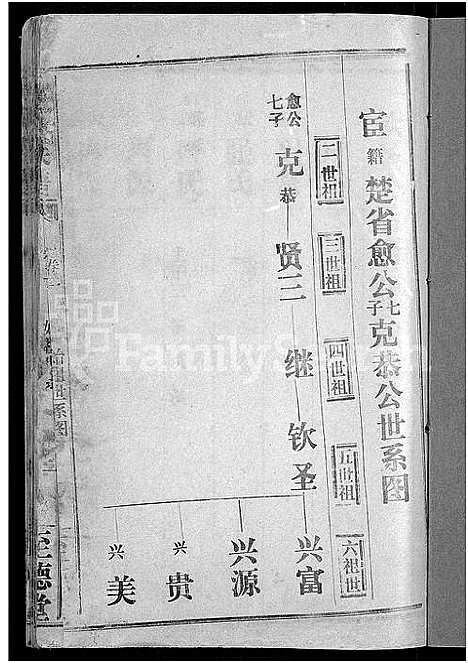 宦籍楚省愈公七子克恭公世系图
二世祖
三世祖
四世祖
五世祖
六世祖
愈公七子克恭
贤三
继
钦圣
兴富
兴源
兴贵
兴美
始祖世系图
至德堂
FamilySearch